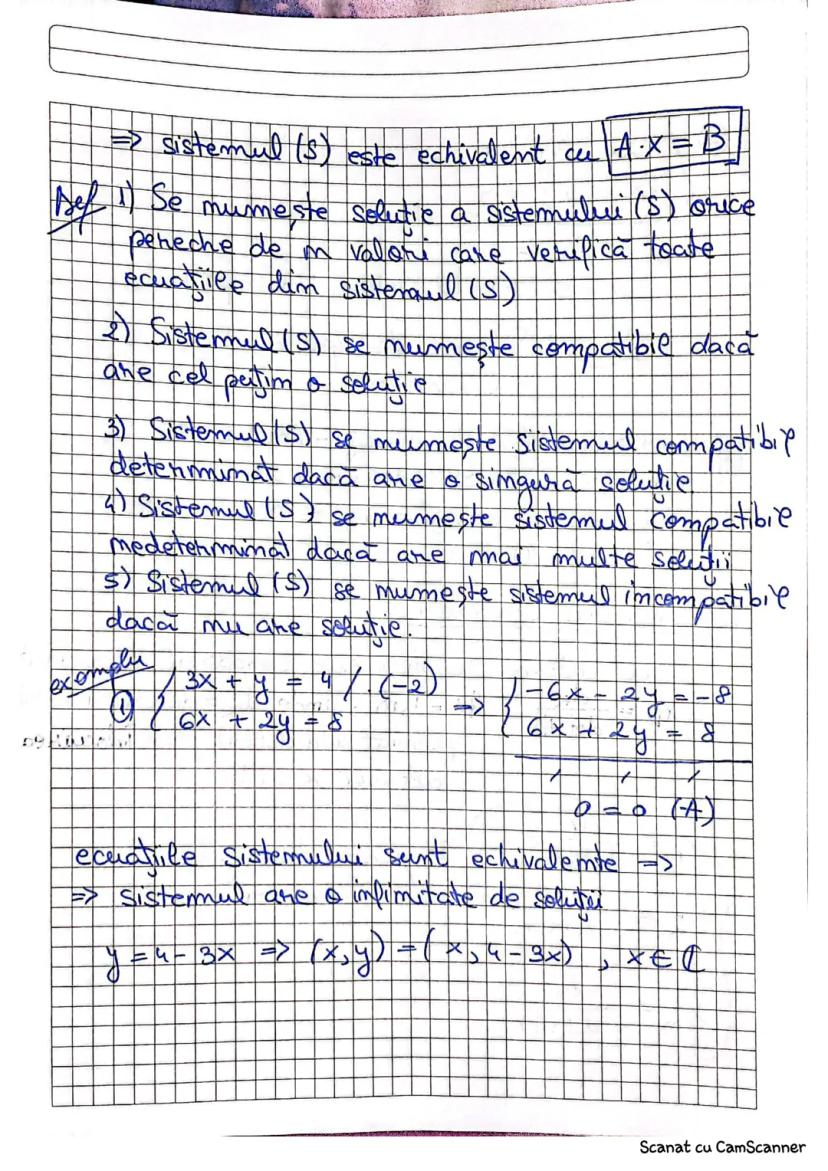 => sistemul (S) este echivalent cu A·X = B
Def 1) Se numește soluție a sistemului (S) orice
pereche de n valori care verifică toate
ecuațiile din sistemul (S)
2) Sistemul (S) se numește compatibil dacă
are cel puțin o soluție
3) Sistemul (S) se numește sistemul compatibil
determinat dacă are o singură soluție.
4) Sistemul (S) se numește sistemul compatibil
nedeterminat dacă are mai multe soluții
5) Sistemul (S) se numește sistemul incompatibil
dacă nu are soluție.
exemplu
① { 3x + y = 4 /·(-2) => { -6x - 2y = -8
6x + 2y = 8 6x + 2y = 8
/ / /
0 = 0 (A)
ecuațiile sistemului sunt echivalente =>
=> sistemul are o infinitate de soluții
y = 4 - 3x => (x, y) = (x, 4 - 3x) , x ∈ ℂ
Scanat cu CamScanner